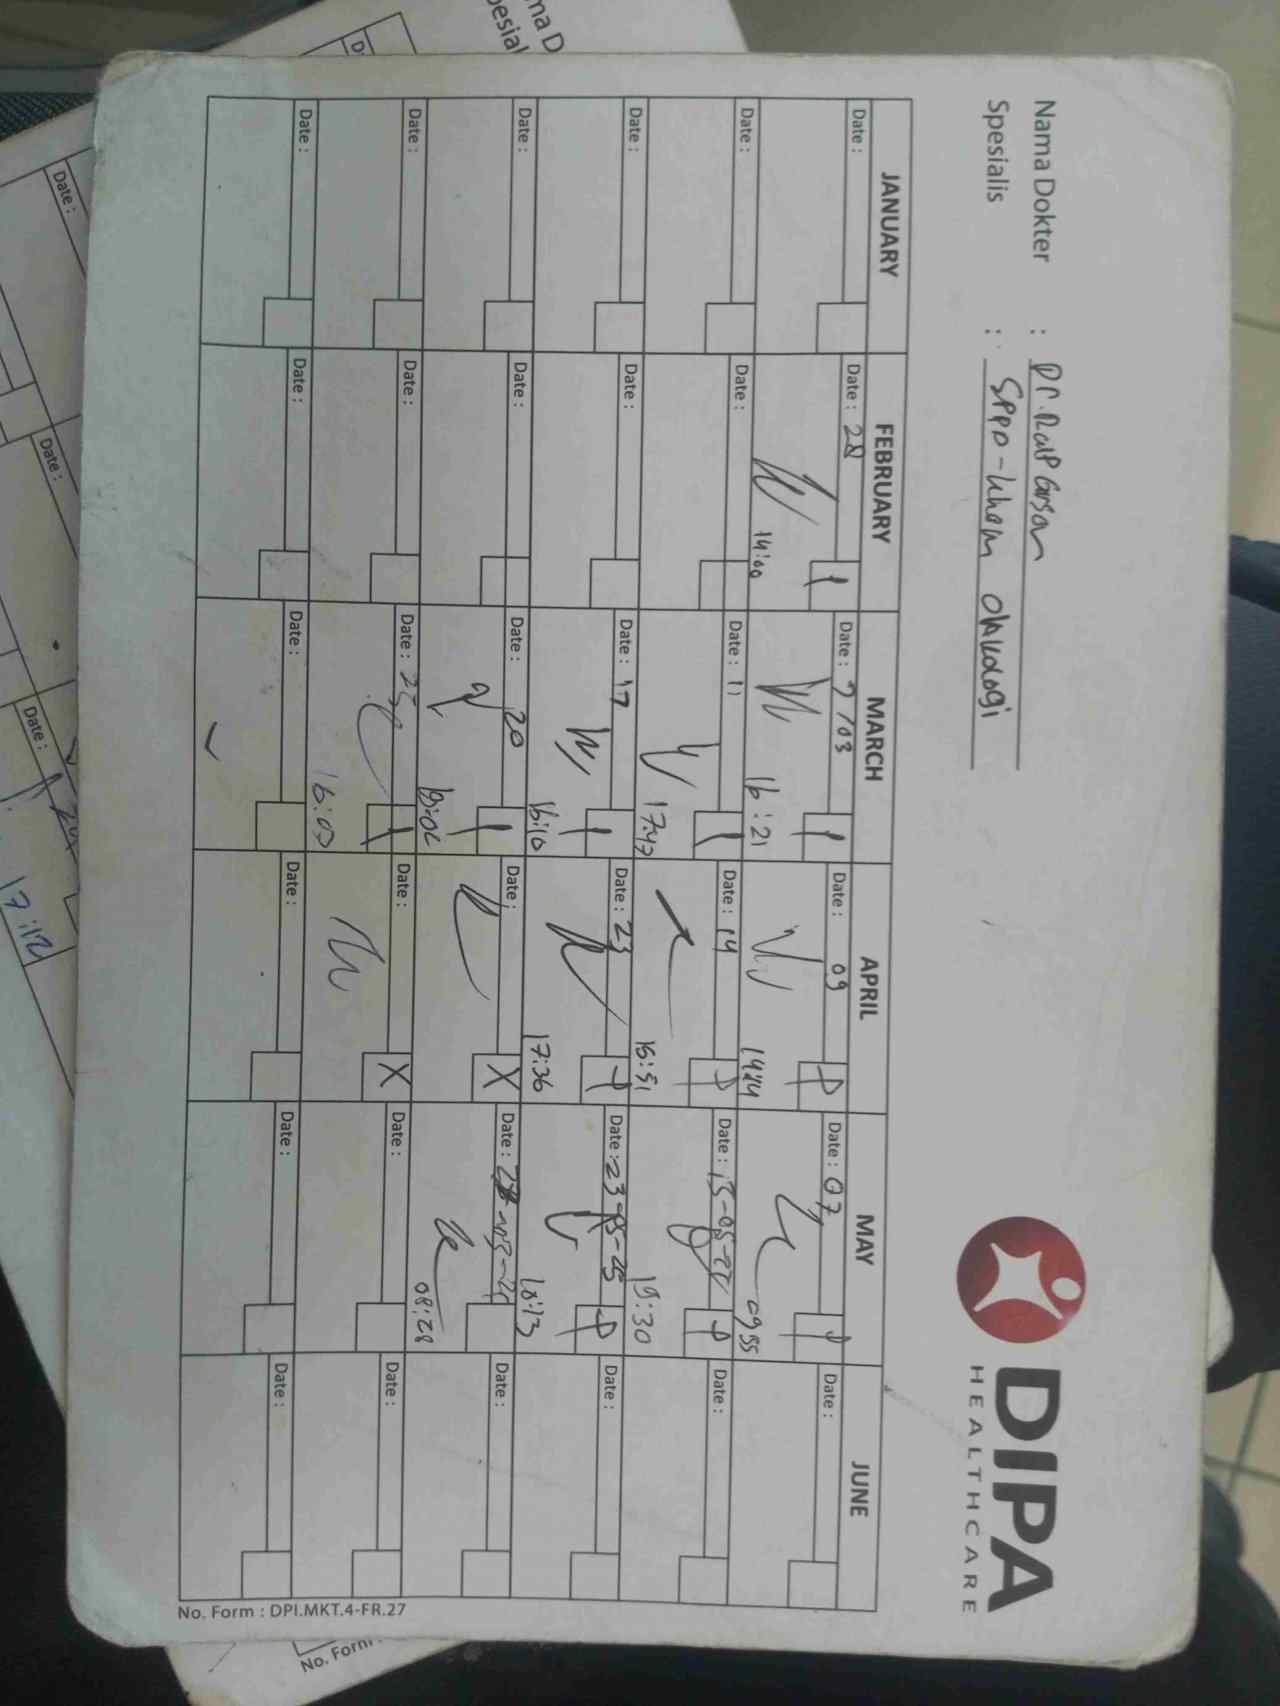 Nama Dokter : Dr.
Spesialis : SPPD - khom onkologi
DIPA
HEALTHCARE
JANUARY FEBRUARY MARCH APRIL MAY JUNE
Date : Date : 28 Date : 7/03 Date : 09 Date : 07 Date :
14:00 16:21 0955
Date : Date : Date : 11 Date : 14 Date : 13-05- Date :
17:47 15:51 19:30
Date : Date : Date : 17 Date : 23 Date : 23-05-25 Date :
16:10 17:36 18:13
Date : Date : Date : 20 Date : Date : Date :
08:28
Date : Date : Date : 25 Date : Date : Date :
16:03
Date : Date : Date : Date : Date : Date :
No. Form : DPI.MKT.4-FR.27
Date :
Date :
Date :
17:12
No. Form